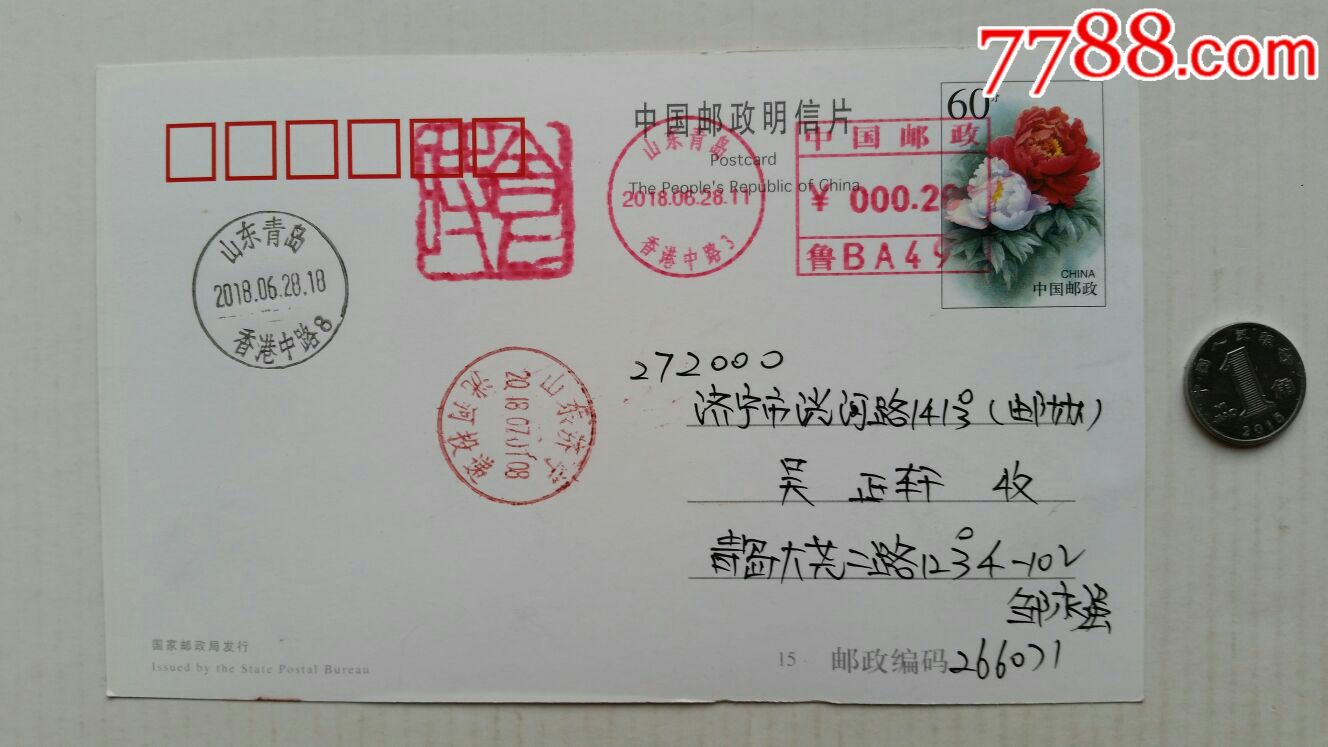 7788.com
中国邮政明信片
Postcard
The People's Republic of China
60分
CHINA
中国邮政
山东青岛
2018.06.28.11
香港中路3
中国邮政
¥ 000.2
鲁BA49
山东青岛
2018.06.28.18
香港中路8
山东济宁
2018.07.01.08
洸河路
272000
济宁市洸河路141号(邮协)
吴正轩 收
青岛大尧二路12号4-102
邹庆强
国家邮政局发行
Issued by the State Postal Bureau
15 邮政编码266071
1角
2015